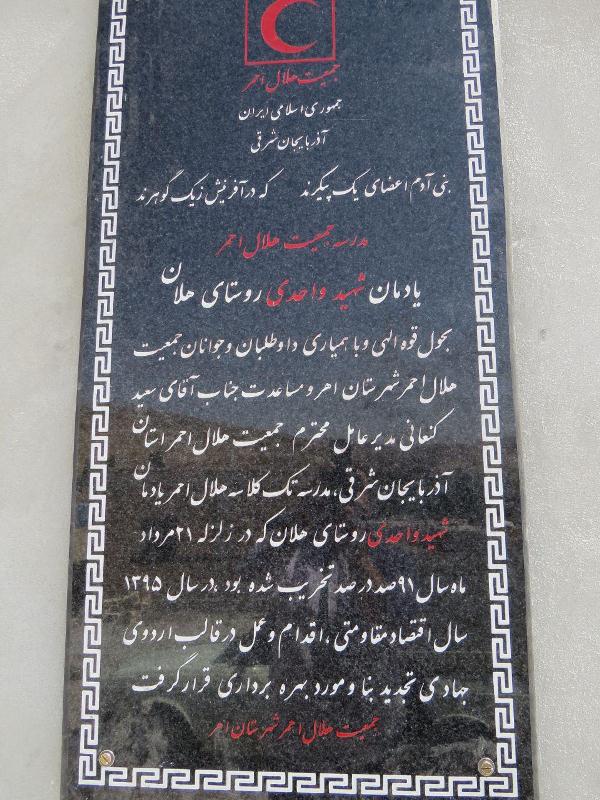 جمعیت هلال احمر
جمهوری اسلامی ایران
آذربایجان شرقی
بنی آدم اعضای یک پیکرند که در آفرینش زیک گوهرند
مدرسه جمعیت هلال احمر
یادمان شهید واحدی روستای هلان
بحول قوه الهی وبا همیاری داوطلبان وجوانان جمعیت
هلال احمر شهرستان اهر و مساعدت جناب آقای سعید
کنعانی مدیر عامل محترم جمعیت هلال احمر استان
آذربایجان شرقی، مدرسه تک کلاسه هلال احمر یادمان
شهید واحدی روستای هلان که در زلزله ۲۱مرداد
ماه سال ۹۱ صد در صد تخریب شده بود ،در سال ۱۳۹۵
سال اقتصاد مقاومتی ، اقدام و عمل در قالب اردوی
جهادی تجدید بنا ومورد بهره برداری قرار گرفت
جمعیت هلال احمر شهرستان اهر